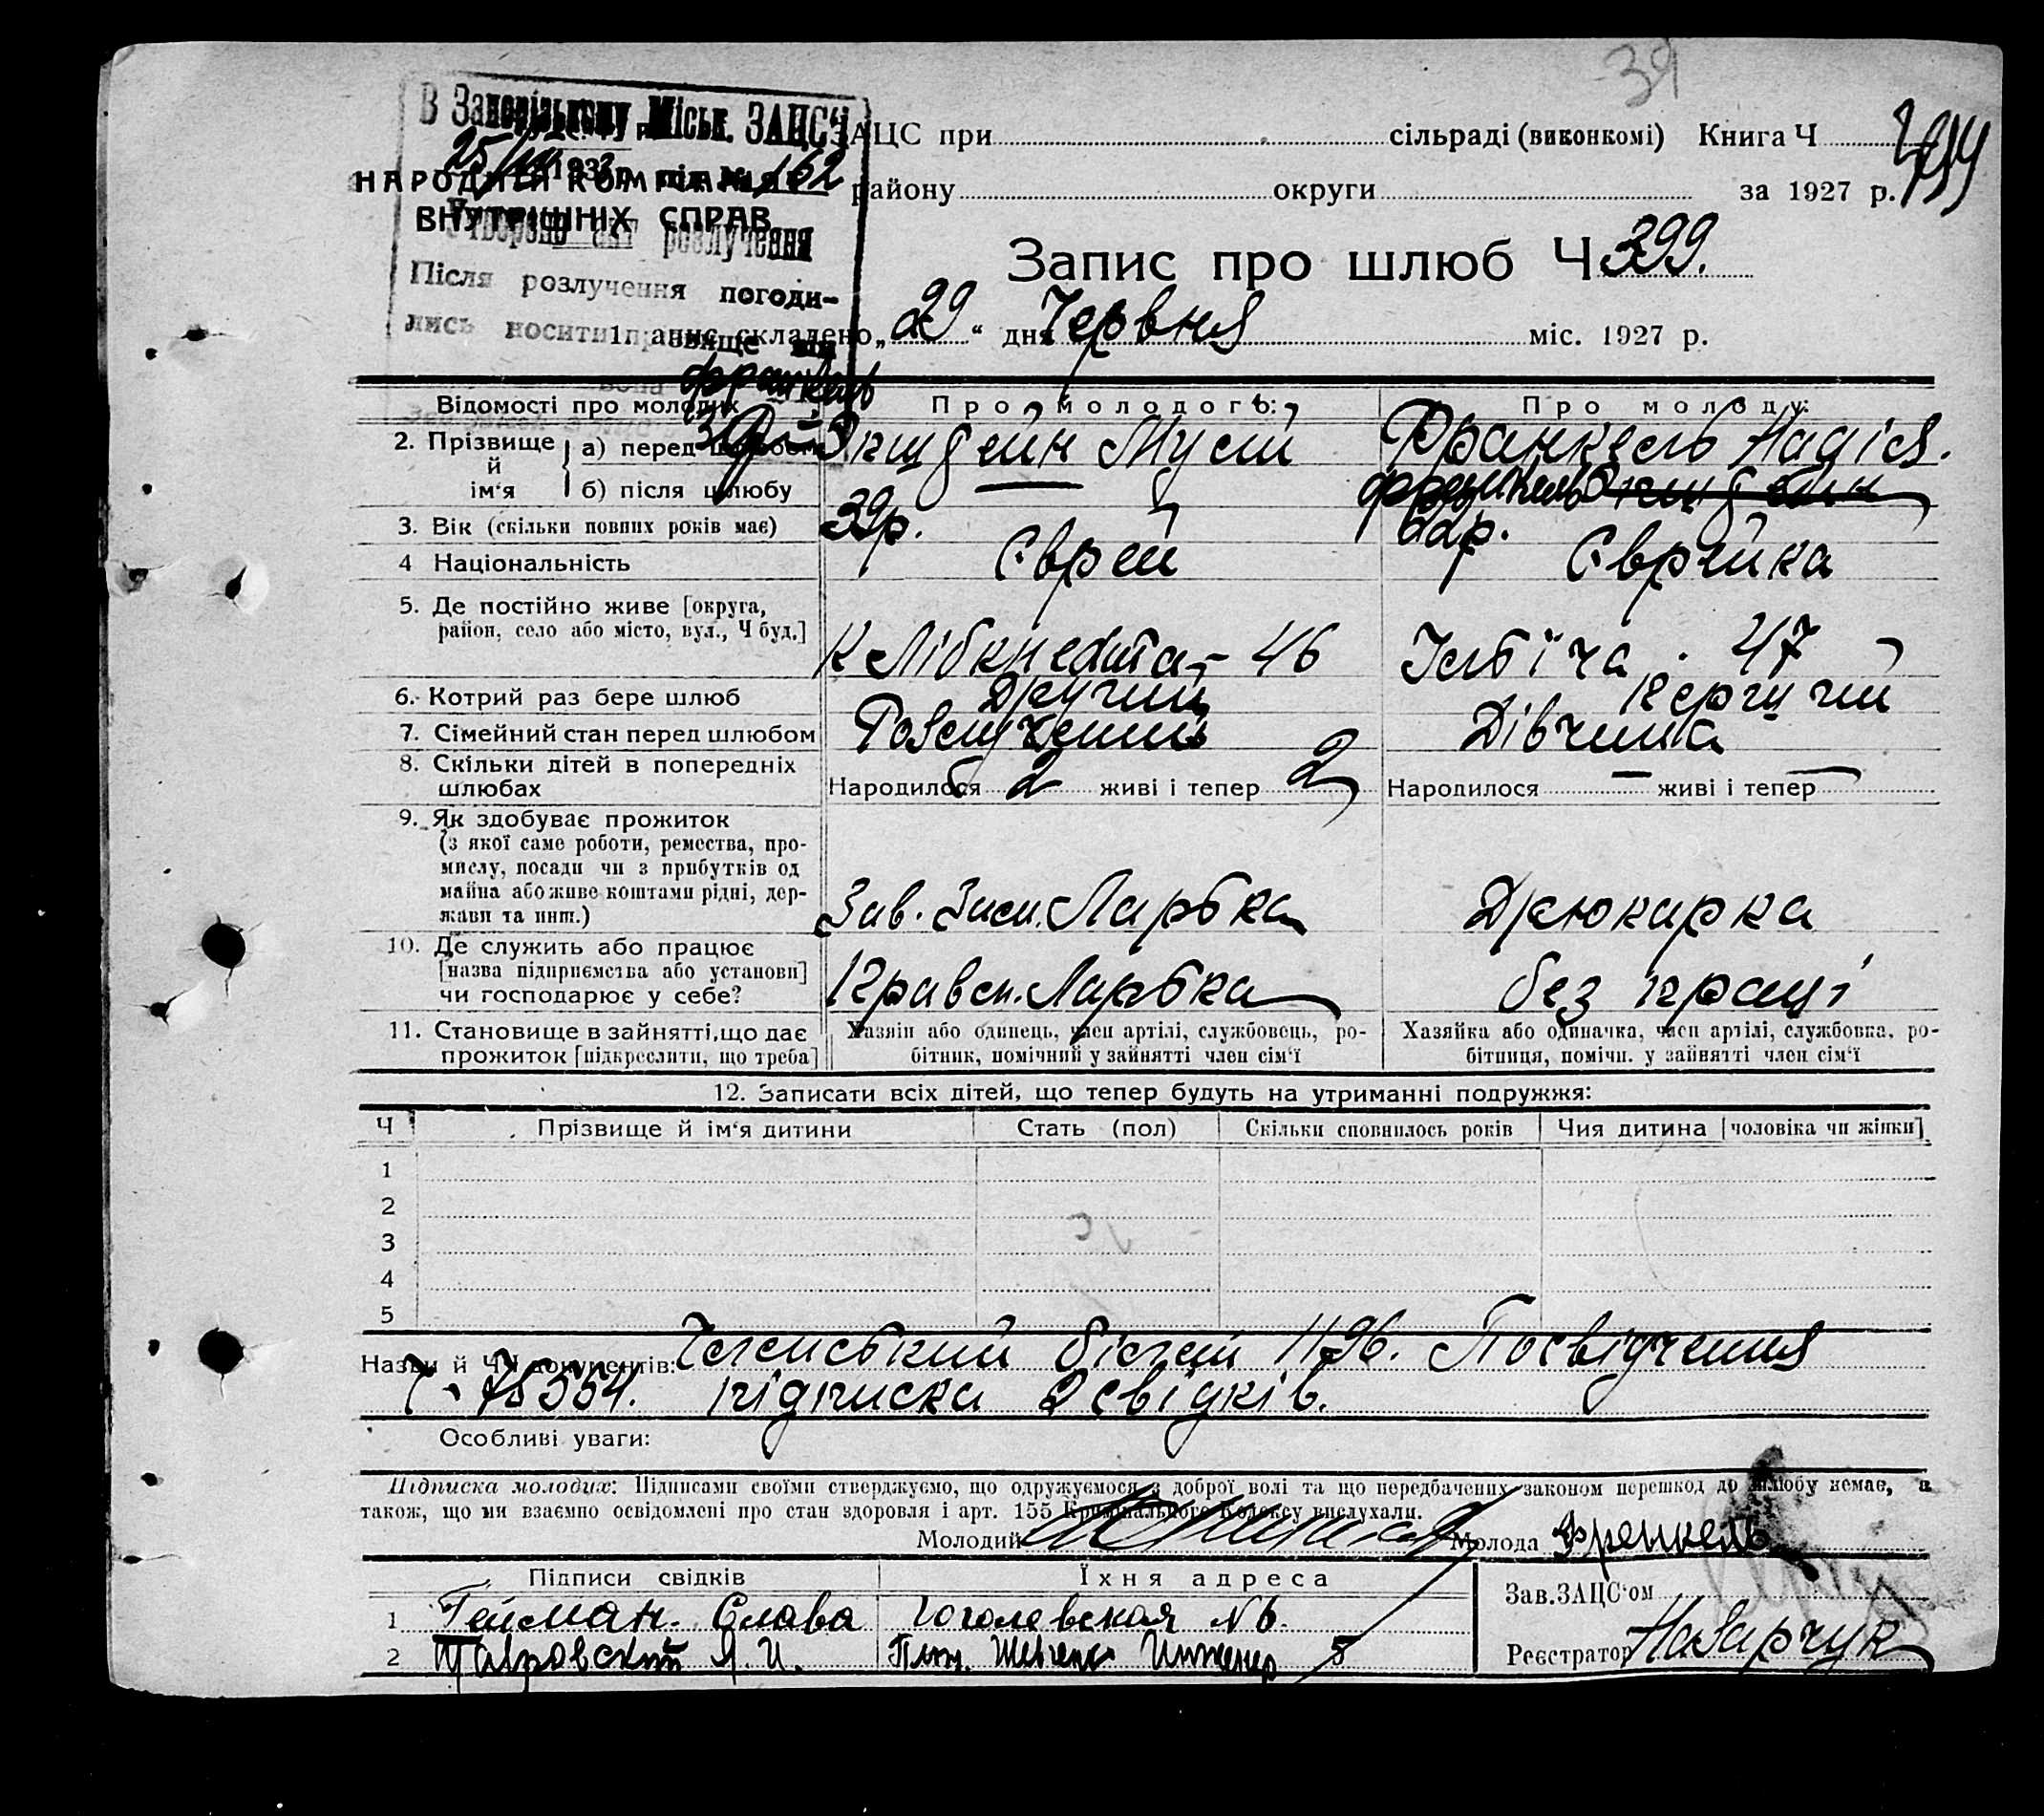 39
В Запорізькому Міськ. ЗАЦС'і
ЗАЦС при сільраді (виконкомі) Книга Ч
25 193 р. під № 162
НАРОДНИЙ КОМІСАРІЯТ
району округи за 1927 р.
ВНУТРІШНІХ СПРАВ
Створено акт розлучення
Запис про шлюб Ч 399.
Після розлучення погоди-
лись носити прізвище він
1. Запис складено „29“ дня Червня міс. 1927 р.
вона
Відомості про молодих Про молодого: Про молоду:
2. Прізвище й ім'я а) перед шлюбом Мусій Франкель Надія.
б) після шлюбу
3. Вік (скільки повних років має) 39р. 22р.
4 Національність Єврей Єврейка
5. Де постійно живе [округа,
район, село або місто, вул., Ч буд.]
К Лібкнехта – 46 Ілліча . 47
6. Котрий раз бере шлюб Другий Перший
7. Сімейний стан перед шлюбом Розлучений Дівчина
8. Скільки дітей в попередніх
шлюбах
Народилося 2 живі і тепер 2 Народилося — живі і тепер —
9. Як здобуває прожиток
(з якої саме роботи, ремества, про-
мислу, посади чи з прибутків од
майна або живе коштами рідні, дер-
жави та инш.)
Зав. Ларбка Друкарка
10. Де служить або працює
[назва підприємства або установи]
чи господарює у себе?
Ларбка без праці
11. Становище в зайнятті, що дає
прожиток [підкреслити, що треба]
Хазяїн або одинець, член артілі, службовець, ро-
бітник, помічний у зайнятті член сім'ї
Хазяйка або одиначка, член артілі, службовка, ро-
бітниця, помічн. у зайнятті член сім'ї
12. Записати всіх дітей, що тепер будуть на утриманні подружжя:
Ч Прізвище й ім'я дитини Стать (пол) Скільки сповнилось років Чия дитина [чоловіка чи жінки]
1
2
3
4
5
Назви й ЧЧ документів: Членський білет 1196. Посвідчення
Ч - 78354. підписка 2 свідків.
Особливі уваги:
Підписка молодих: Підписами своїми стверджуємо, що одружуємося з доброї волі та що передбачених законом перешкод до шлюбу немає, а
також, що ми взаємно освідомлені про стан здоровля і арт. 155 Кримінального Кодексу вислухали.
Молодий Молода Френкель
Підписи свідків Їхня адреса
Зав. ЗАЦС'ом
1 Гейман. Слава Гоголевская N 6.
2 Я. И. 5
Реєстратор Назарчук